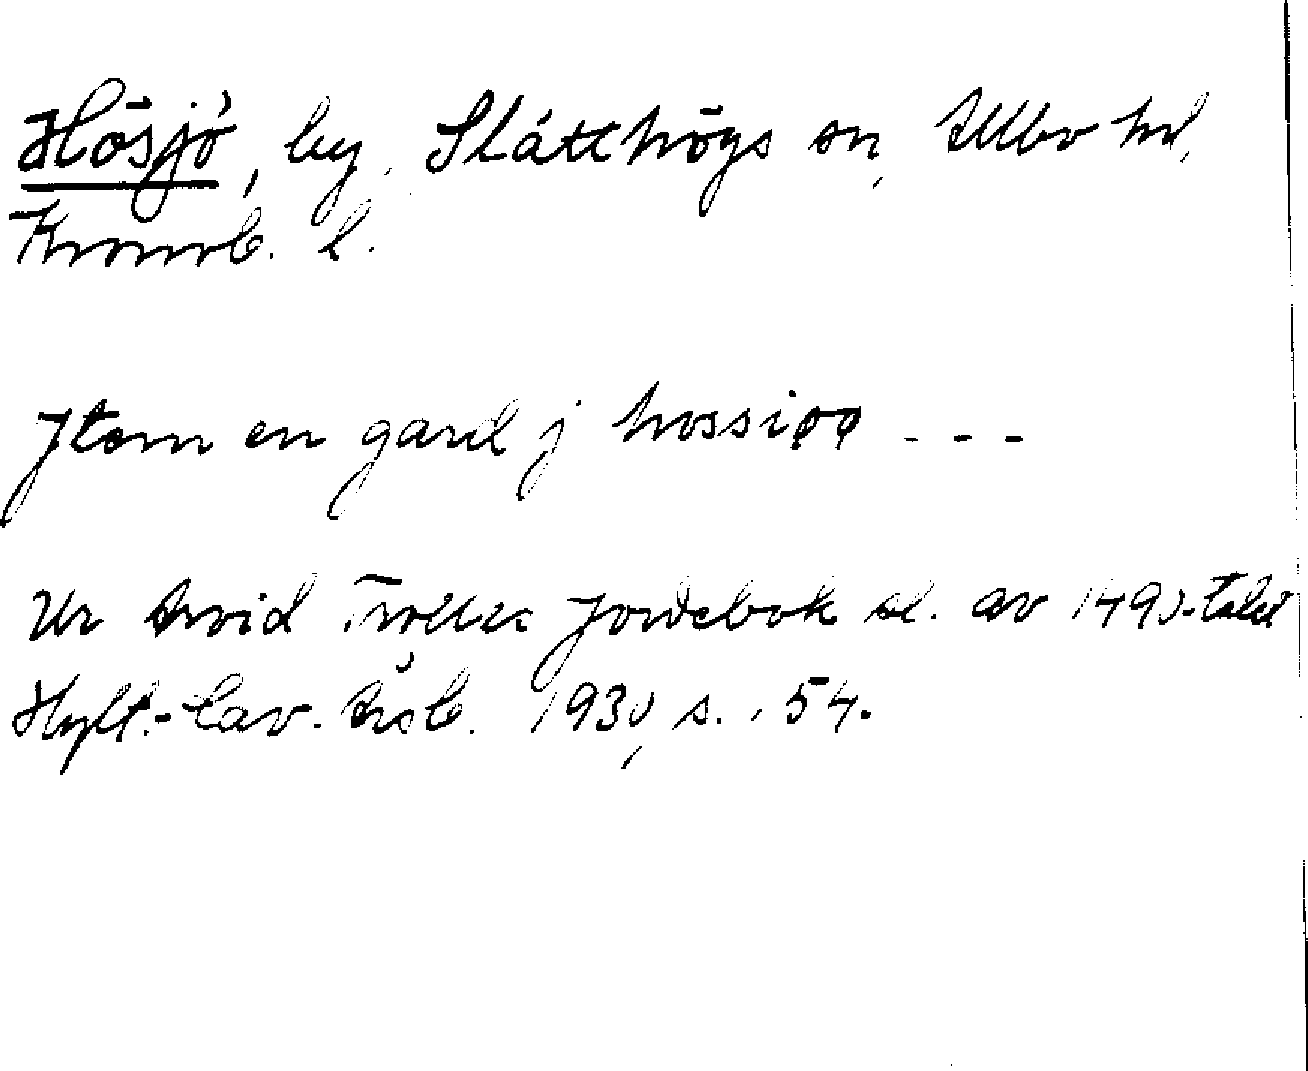 Hösjö, by, Slätthögs sn, Allbo hd,
Kronob. l.
Jtem en gard j hossiøø - - -
Ur Arvid Trolles jordebok sl. av 1490-talet
Hylt.-Cav. Årsb. 1930, s. 54.